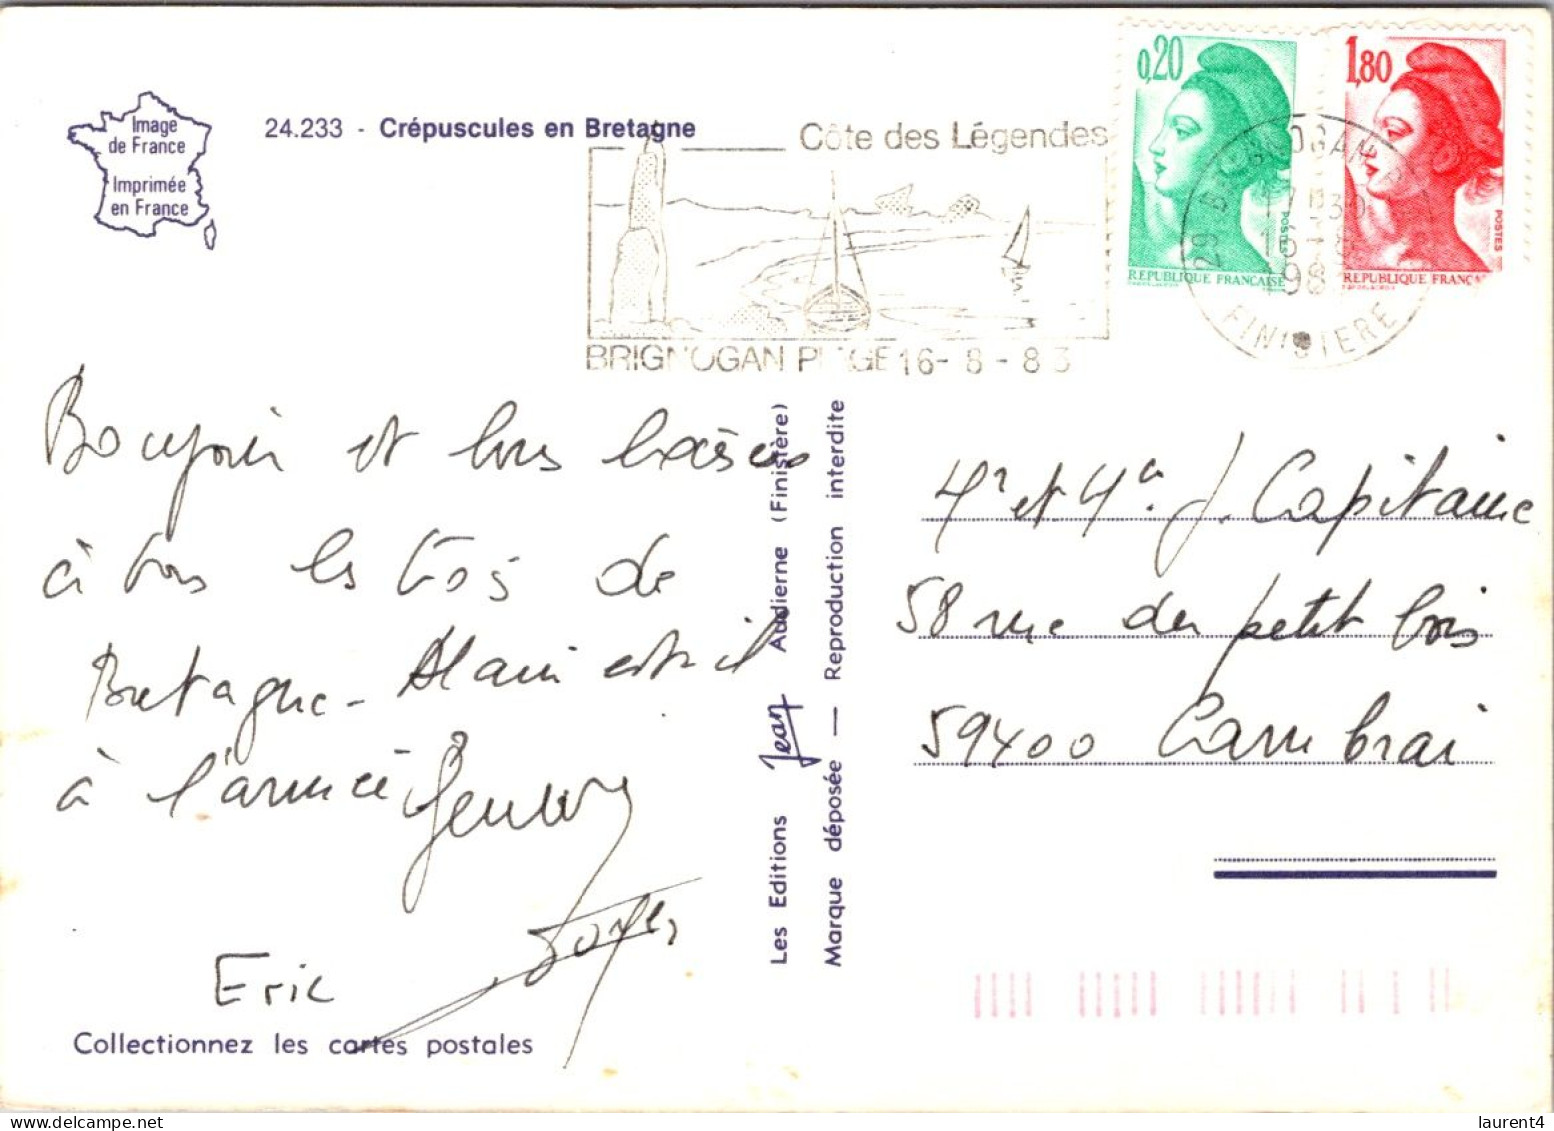 Image
de France
Imprimée
en France
24.233 - Crépuscules en Bretagne
Côte des Légendes
BRIGNOGAN PLAGE 16-8-83
0,20
POSTES
REPUBLIQUE FRANCAISE
1,80
POSTES
REPUBLIQUE FRANCAISE
29 BRIGNOGAN
17 H 30
16
1983
FINISTERE
Bonjour et bons baisers
à tous les trois de
Bretagne - Alain est il
à l'armée
Eric
Collectionnez les cartes postales
Les Editions Jean Audierne (Finistère)
Marque déposée — Reproduction interdite
Mr et Me. J. Capitaine
58 rue du petit bois
59400 Cambrai
laurent4